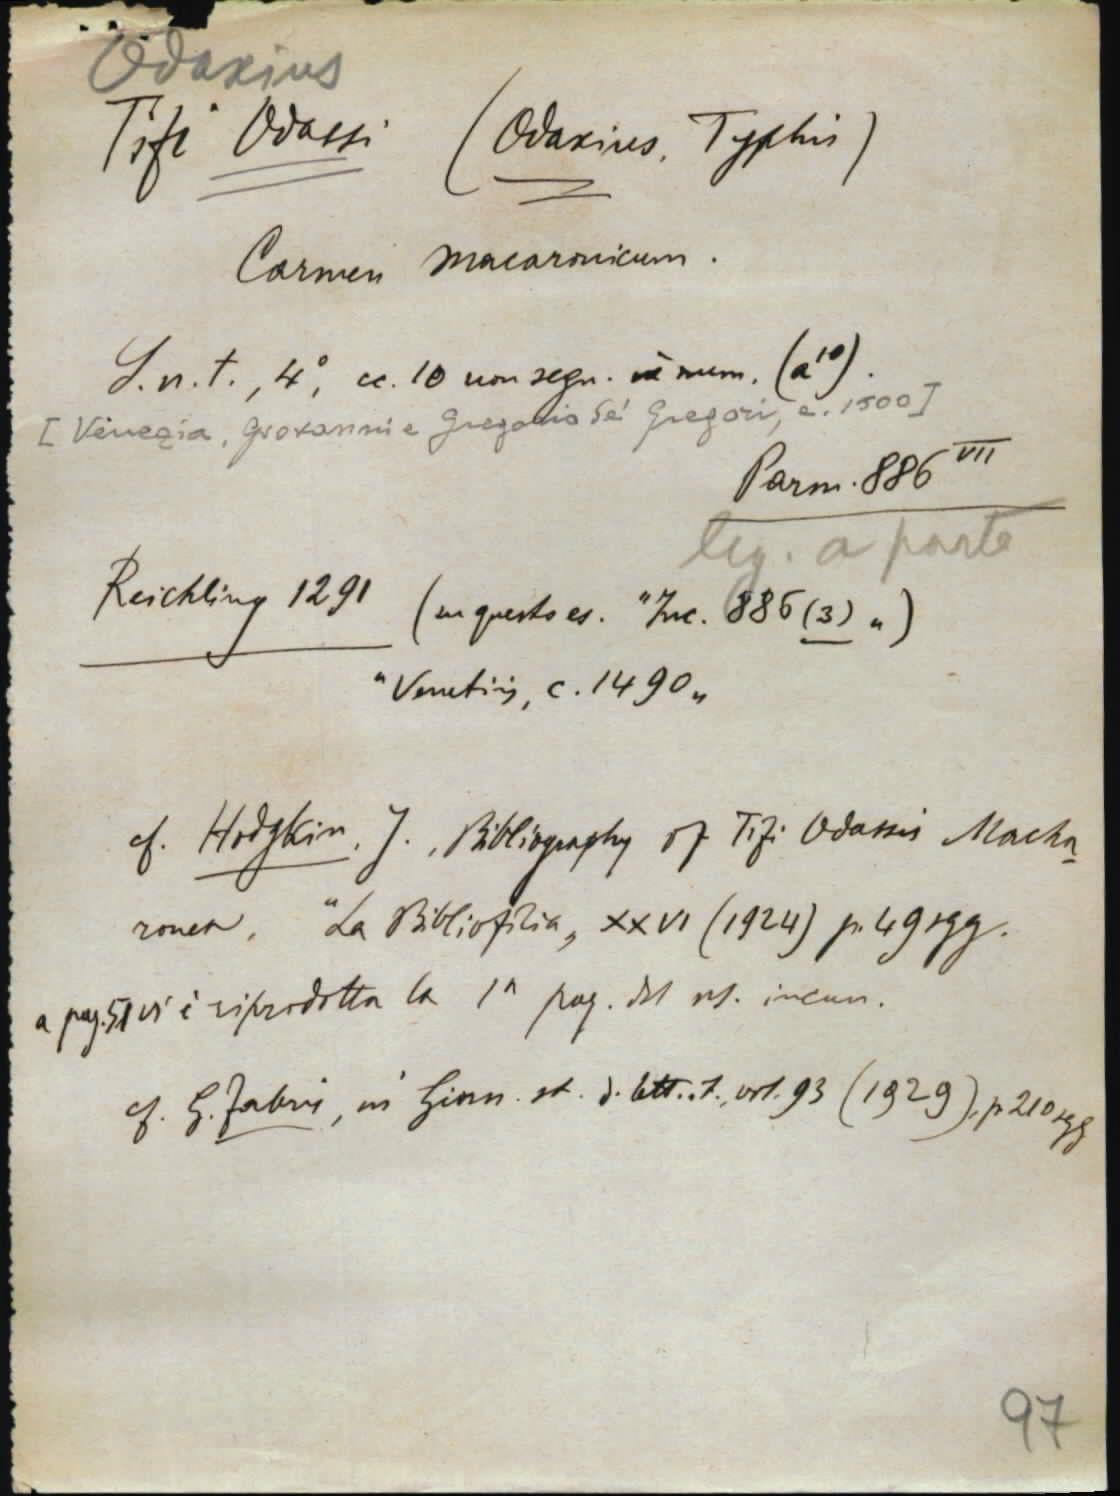 Odaxius
Tifi Odassi (Odaxius, Typhis)
Carmen macaronicum.
S.n.t., 4°, cc. 10 non segn. nè num. (a¹⁰).
[Venezia, Giovanni e Gregorio de' Gregori, c. 1500]
Parm. 886 VII
leg. a parte
Reichling 1291 (in questo es. "Inc. 886 (3)")
"Venetiis, c. 1490"
cf. Hodgkin, J., Bibliography of Tifi Odassis Macha-
ronea. "La Bibliofilia", XXVI (1924) p. 49 sgg.
a pag. 51 vi è riprodotta la 1ª pag. del ns. incun.
cf. G. Fabris, in Giorn. st. d. lett. it., vol. 93 (1929), p. 210 sgg
97